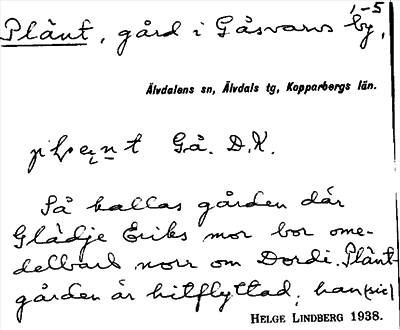 1-5
Plänt, gård i Gåsvarvs by,
Älvdalens sn, Älvdals tg, Kopparbergs län.
Gå. D.K.
Så kallas gården där
Glädje Eriks mor bor ome-
delbart norr om Dordi. Plänt-
gården är hitflyttad, han (sic)
HELGE LINDBERG 1938.